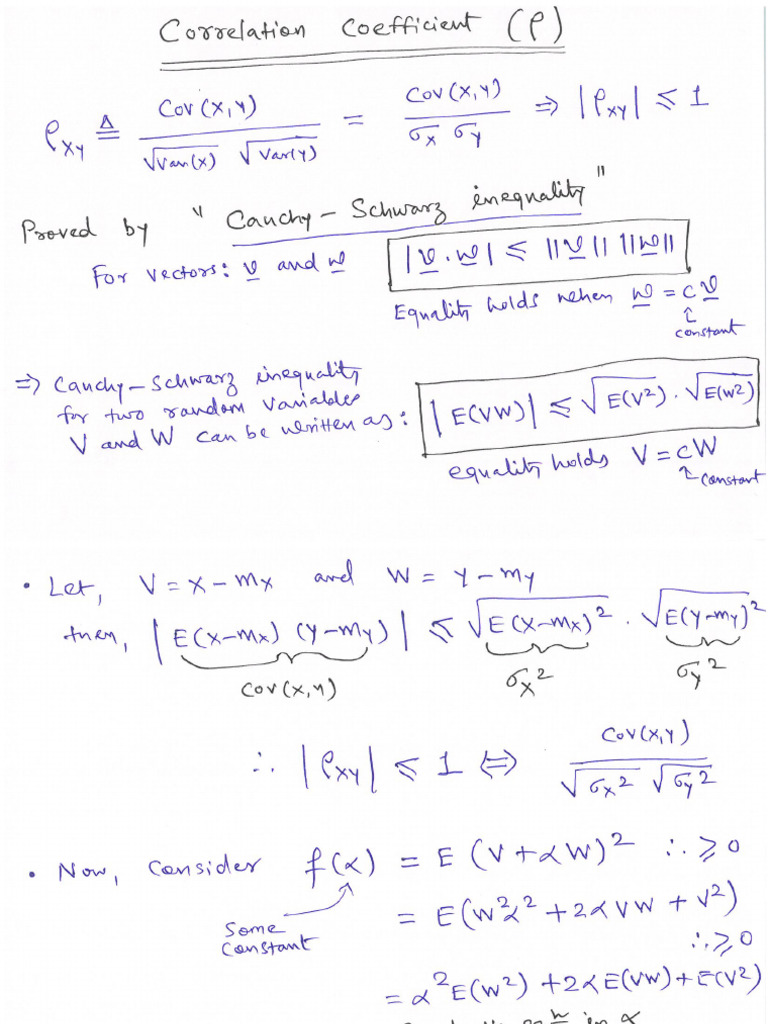 Correlation Coefficient (ρ)
ρ_XY ≜ Cov(X,Y) / √Var(X) √Var(Y) = Cov(X,Y) / σ_X σ_Y ⇒ |ρ_XY| ≤ 1
Proved by "Cauchy-Schwarz inequality"
For vectors: v and w |v·w| ≤ ||v|| ||w||
Equality holds when w = cv
↑
constant
⇒ Cauchy-Schwarz inequality
for two random variables
V and W can be written as: |E(VW)| ≤ √E(V²) · √E(W²)
equality holds V = cW
↑ constant
• Let, V = X - m_X and W = Y - m_Y
then, |E(X-m_X) (Y-m_Y)| ≤ √E(X-m_X)² · √E(Y-m_Y)²
Cov(X,Y) σ_X² σ_Y²
∴ |ρ_XY| ≤ 1 ⇔ Cov(X,Y) / √σ_X² √σ_Y²
• Now, Consider f(α) = E(V+αW)² ∴ ≥ 0
Some
Constant
= E(W²α² + 2αVW + V²)
∴ ≥ 0
= α²E(W²) + 2αE(VW) + E(V²)
in α